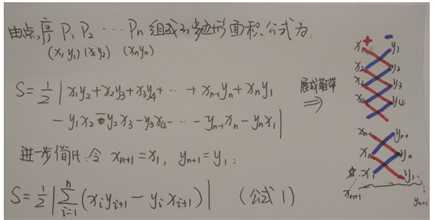 由点序 P₁ P₂ ⋯ Pₙ 组成的多边形面积公式为
(x₁,y₁) (x₂y₂) (xₙyₙ)
S=½|x₁y₂+x₂y₃+x₃y₄+ ⋯ +xₙ₋₁yₙ+xₙy₁
-y₁x₂-y₂x₃-y₃x₄- ⋯ -yₙ₋₁xₙ-yₙx₁|
进一步简化,令 xₙ₊₁=x₁, yₙ₊₁=y₁:
S=½|∑ⁿᵢ₌₁(xᵢyᵢ₊₁-yᵢxᵢ₊₁)| (公式1)
⇒
+ -
x₁ y₁
x₂ y₂
x₃ y₃
x₄ y₄
xₙ₋₁ yₙ₋₁
xₙ yₙ
x₁ y₁
xₙ₊₁ yₙ₊₁